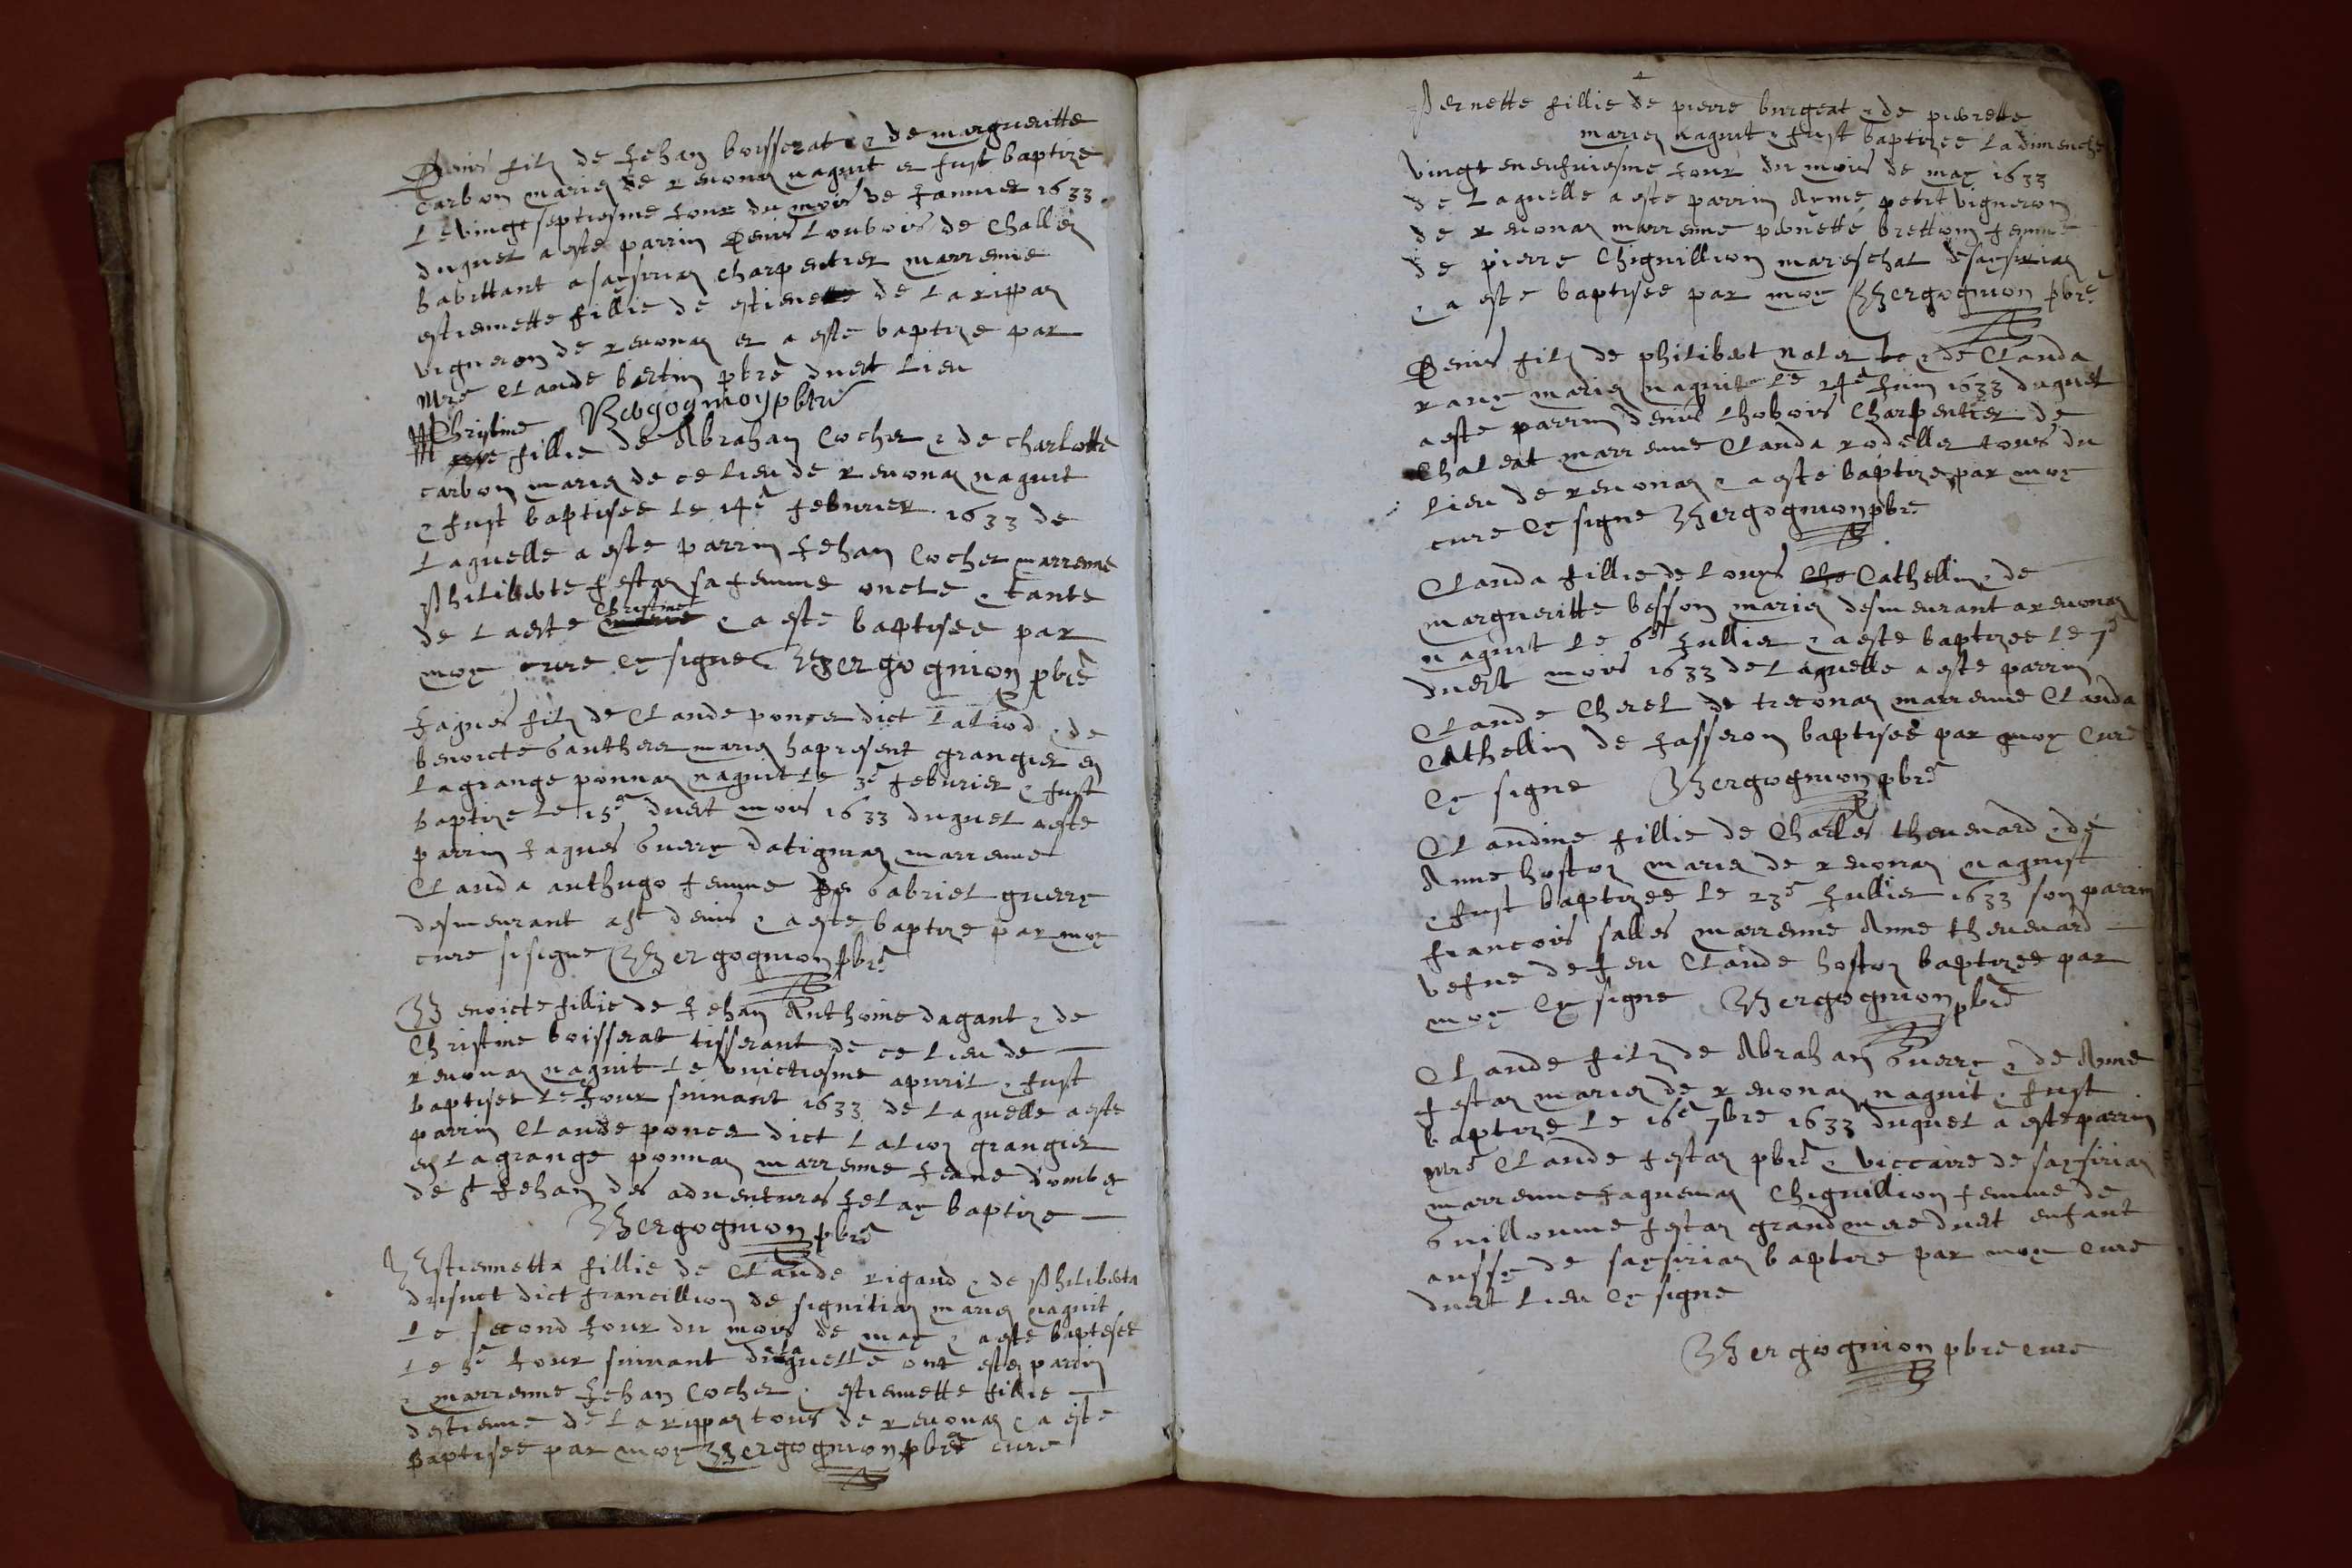 Denis filz de Jehan boisserat & de margueritte
Carbon mariez de revonaz naquit et fust baptize
Le vingt septiesme Jour du mois de Januier 1633
duquel a este parrin Denis Loubois de Challea
habittant a saysiriaz charpentier marrenne
estiennette fillie de estienne de La rippaz
vigneron de reuonaz et a este baptize par
Mre Claude bertin pbre dudt Lieu
Bergognion pbre
Christine
fillie de Abraham Cocher & de charlotte
carbon mariez de ce lieu de reuonaz naquit
& fust baptisee le 14e feburier 1633 de
Laquelle a este parrin Jehan Cocher marrenne
Philiberte festaz sa femme oncle & tante
de Ladte Christine & a este baptisee par
moy cure cy signe Bergognion pbre
Jaques filz de Claude poncer dict Laliod & de
benoicte Gautherer mariez hapresent grangier en
Lagrange ponnaz naquit le 3e feburier & fust
baptize le 15e dudt mois 1633 duquel a este
parrin Jaques Guerry datignaz marrenne
Clauda anthugo femme de Gabriel guerry
desmeurant a St denis & a este baptize par moy
cure sisigne Bergognion pbre
Benoicte fillie de Jehan Anthoine dagant & de
Christine boisserat tisserant de ce Lieu de
reuonaz naquit le huictiesme apuril & fust
baptisee le Jour suiuant 1633 de Laquelle a este
parrin Claude poncer dict Laliod grangier
en Lagrange ponnaz marrenne Jeane dombey
de St Jehan des aduentures Je Lay baptize
Bergognion pbre
Estiennetta fillie de Claude rigaud & de Philiberta
dict francillion de signitiaz mariez naquit
Le second Jour du mois de may & a este baptesee
le 3e Jour suiuant de laquelle ont estez parrin
& marrenne Jehan Cocher & estiennette fillie
destienne de La rippaz tous de reuonaz & a este
Baptisee par moy Bergognion pbre cure
Pernette fillie de pierre burgeat & de pierette
mariez naquit & fust baptizee La dimenche
vingt eneufuiesme Jour du mois de may 1633
de Laquelle a este parrin Ayme petit vigneron
de reuonaz marrenne pernette brettoin femme
de pierre Chignillion mareschal de saysiriaz
& a este baptisee par moy Bergognion pbre
Denis filz de philibert nalet & de Clauda
rany mariez naquit le 24e Juin 1633 duquel
a este parrin denis Lhobois Charpentier de
Chaleat marrenne Clauda rodeller tous du
lieu de reuonaz & a este baptize par moy
cure cy signe Bergognion pbre
Clauda fillie de Louys Che Cathellin & de
margueritte besson mariez desmeurant a reuonaz
naquit le 6e Jullier & a este baptizee le 7e
dudt mois 1633 de Laquelle a este parrin
Claude Cherel de treconaz marrenne Clauda
Cathellin de Jasseron baptisee par moy Cure
Cy signe Bergognion pbre
Claudine fillie de Charles theuenard & de
Anne hoston mariez de reuonaz naquist
& fust baptizee le 23e Jullier 1633 son parrin
francois salles marrenne Anne theuenard
vefue de feu Claude hoston baptizee par
moy Cy signe Bergognion pbre
Claude filz de Abraham Guerry & de Anne
festaz mariez de reuonaz naquit & fust
baptize le 16e 7bre 1633 duquel a este parrin
Mre Claude festaz pbre & viccaire de saysiriaz
marrenne Jaquemaz Chignillion femme de
Guilloume festaz grand mere dudt enfant
aussy de saysiriaz baptize par moy cure
dudt Lieu Cy signe
Bergognion pbre cure